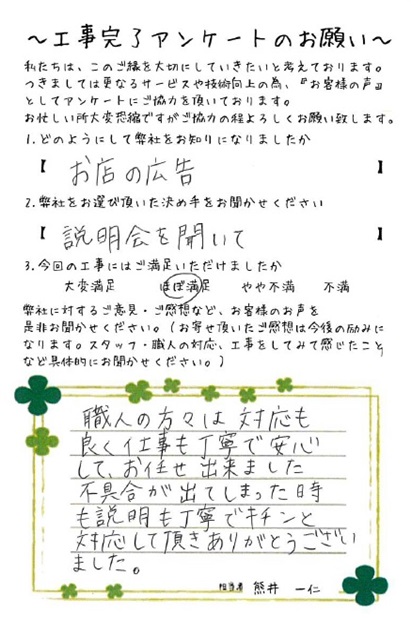 ～工事完了アンケートのお願い～
私たちは、このご縁を大切にしていきたいと考えております。
つきましては更なるサービスや技術向上の為、『お客様の声』
としてアンケートにご協力を頂いております。
お忙しい所大変恐縮ですがご協力の程よろしくお願い致します。
1.どのようにして弊社をお知りになりましたか
【 お店の広告 】
2.弊社をお選び頂いた決め手をお聞かせください
【 説明会を聞いて 】
3.今回の工事にはご満足いただけましたか
大変満足 ほぼ満足 やや不満 不満
弊社に対するご意見・ご感想など、お客様のお声を
是非お聞かせください。(お寄せ頂いたご感想は今後の励みに
なります。スタッフ・職人の対応、工事をしてみて感じたこと
など具体的にお聞かせください。)
職人の方々は対応も
良く仕事も丁寧で安心
して、お任せ出来ました
不具合が出てしまった時
も説明も丁寧でキチンと
対応して頂きありがとうござい
ました。
担当者 熊井 一仁